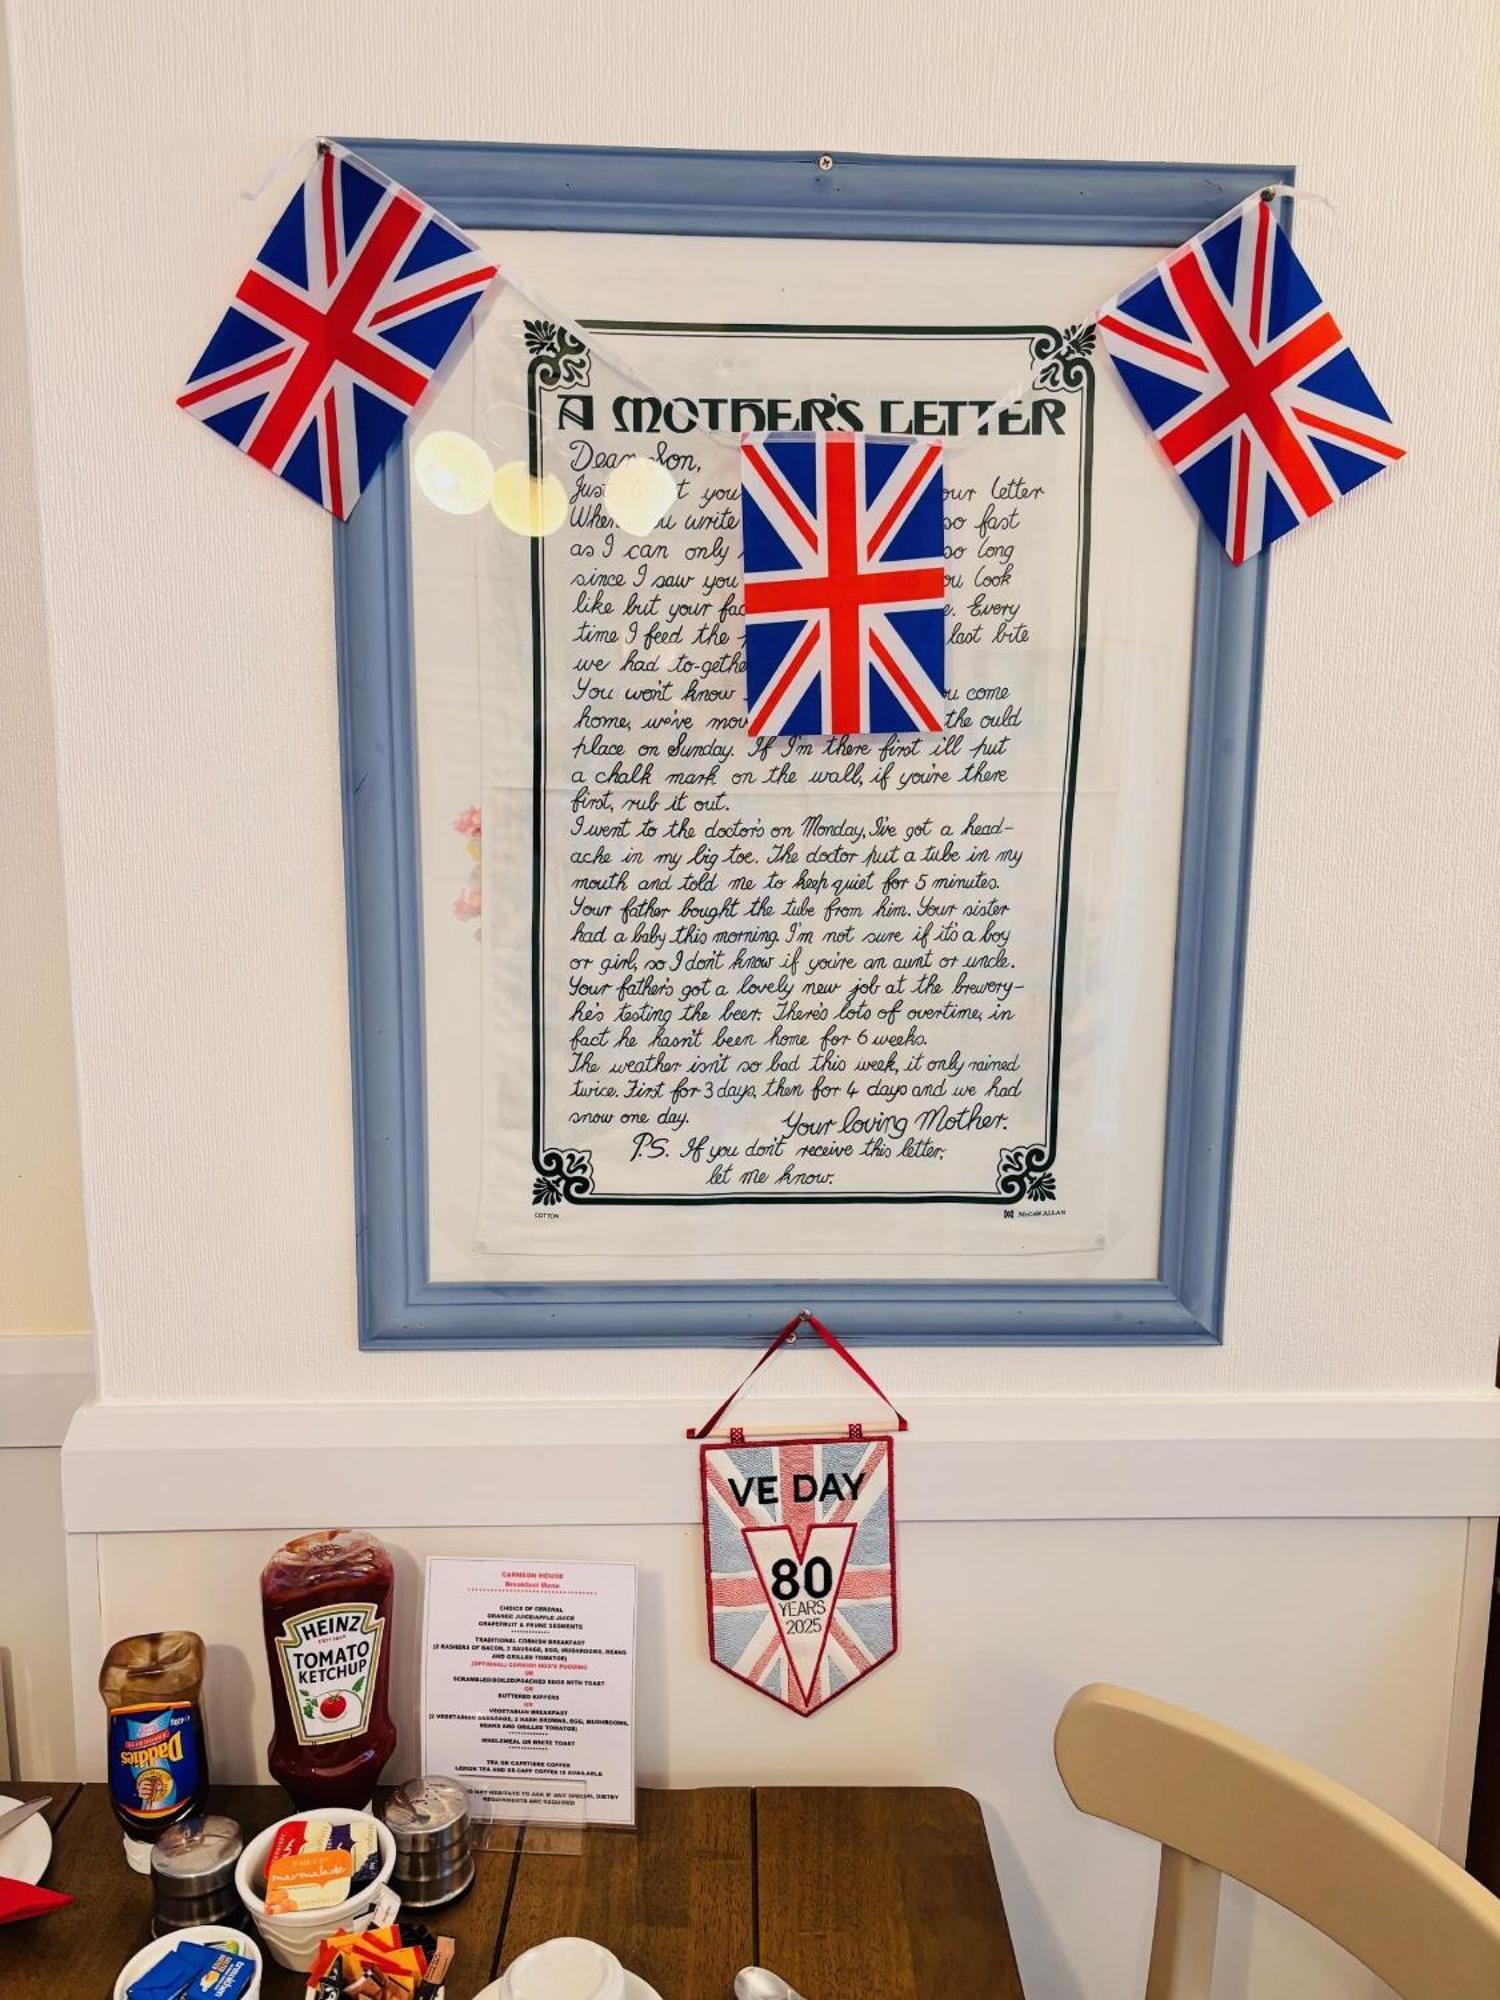 A MOTHER'S LETTER
Dear Son,
Just let you our letter
When you write so fast
as I can only so long
since I saw you you look
like but your fac e. Every
time I feed the last bite
we had to-gethe
You won't know you come
home, we've mov the ould
place on Sunday. If I'm there first i'll put
a chalk mark on the wall, if you're there
first, rub it out.
I went to the doctor's on Monday, I've got a head-
ache in my big toe. The doctor put a tube in my
mouth and told me to keep quiet for 5 minutes.
Your father bought the tube from him. Your sister
had a baby this morning. I'm not sure if it's a boy
or girl, so I don't know if you're an aunt or uncle.
Your father's got a lovely new job at the brewery-
he's testing the beer. There's lots of overtime, in
fact he hasn't been home for 6 weeks.
The weather isn't so bad this week, it only rained
twice. First for 3 days, then for 4 days and we had
snow one day. Your loving Mother.
P.S. If you don't receive this letter,
let me know.
COTTON
McCAW ALLAN
VE DAY
80
YEARS
2025
HEINZ
TOMATO
KETCHUP
Daddies
CARNSON HOUSE
Breakfast Menu
CHOICE OF CEREAL
ORANGE JUICE/APPLE JUICE
GRAPEFRUIT & PRUNE SEGMENTS
TRADITIONAL CORNISH BREAKFAST
(2 RASHERS OF BACON, 2 SAUSAGE, EGG, MUSHROOMS, BEANS
AND GRILLED TOMATOE)
(OPTIONAL) CORNISH HOG'S PUDDING
OR
SCRAMBLED/BOILED/POACHED EGGS WITH TOAST
OR
BUTTERED KIPPERS
OR
VEGETARIAN BREAKFAST
(2 VEGETARIAN SAUSAGES, 2 HASH BROWNS, EGG, MUSHROOMS,
BEANS AND GRILLED TOMATOE)
WHOLEMEAL OR WHITE TOAST
TEA OR CAFETIERE COFFEE
LEMON TEA AND DE-CAFF COFFEE IS AVAILABLE
NOT HESITATE TO ASK IF ANY SPECIAL DIETRY
REQUIREMENTS ARE REQUIRED
marmalade